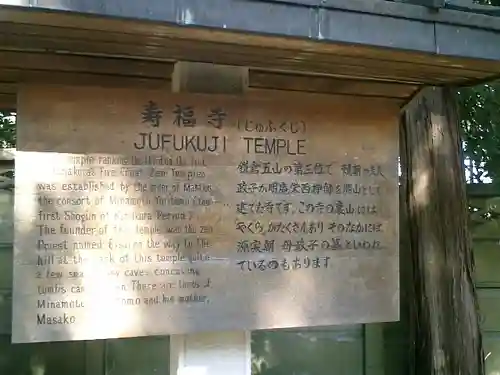 寿福寺(じゅふくじ)
JUFUKUJI TEMPLE
temple ranking the third of the list
Kamakura's Five Great Zen Temples
was established by the order of Masako
the consort of Minamoto Yoritomo (the
first Shogun of Kamakura Period).
The founder of this temple was the zen
priest named Eisai. On the way to the
hill at the back of this temple quite
a few small caves containing
tombs can be seen. There are tombs of
Minamoto and his mother,
Masako
鎌倉五山の第三位で、頼朝の夫人
政子が明庵栄西禅師を開山として
建てた寺です。この寺の裏山には
やぐらがたくさんあり そのなかには
源実朝 母政子の墓といわれ
ているのもあります。